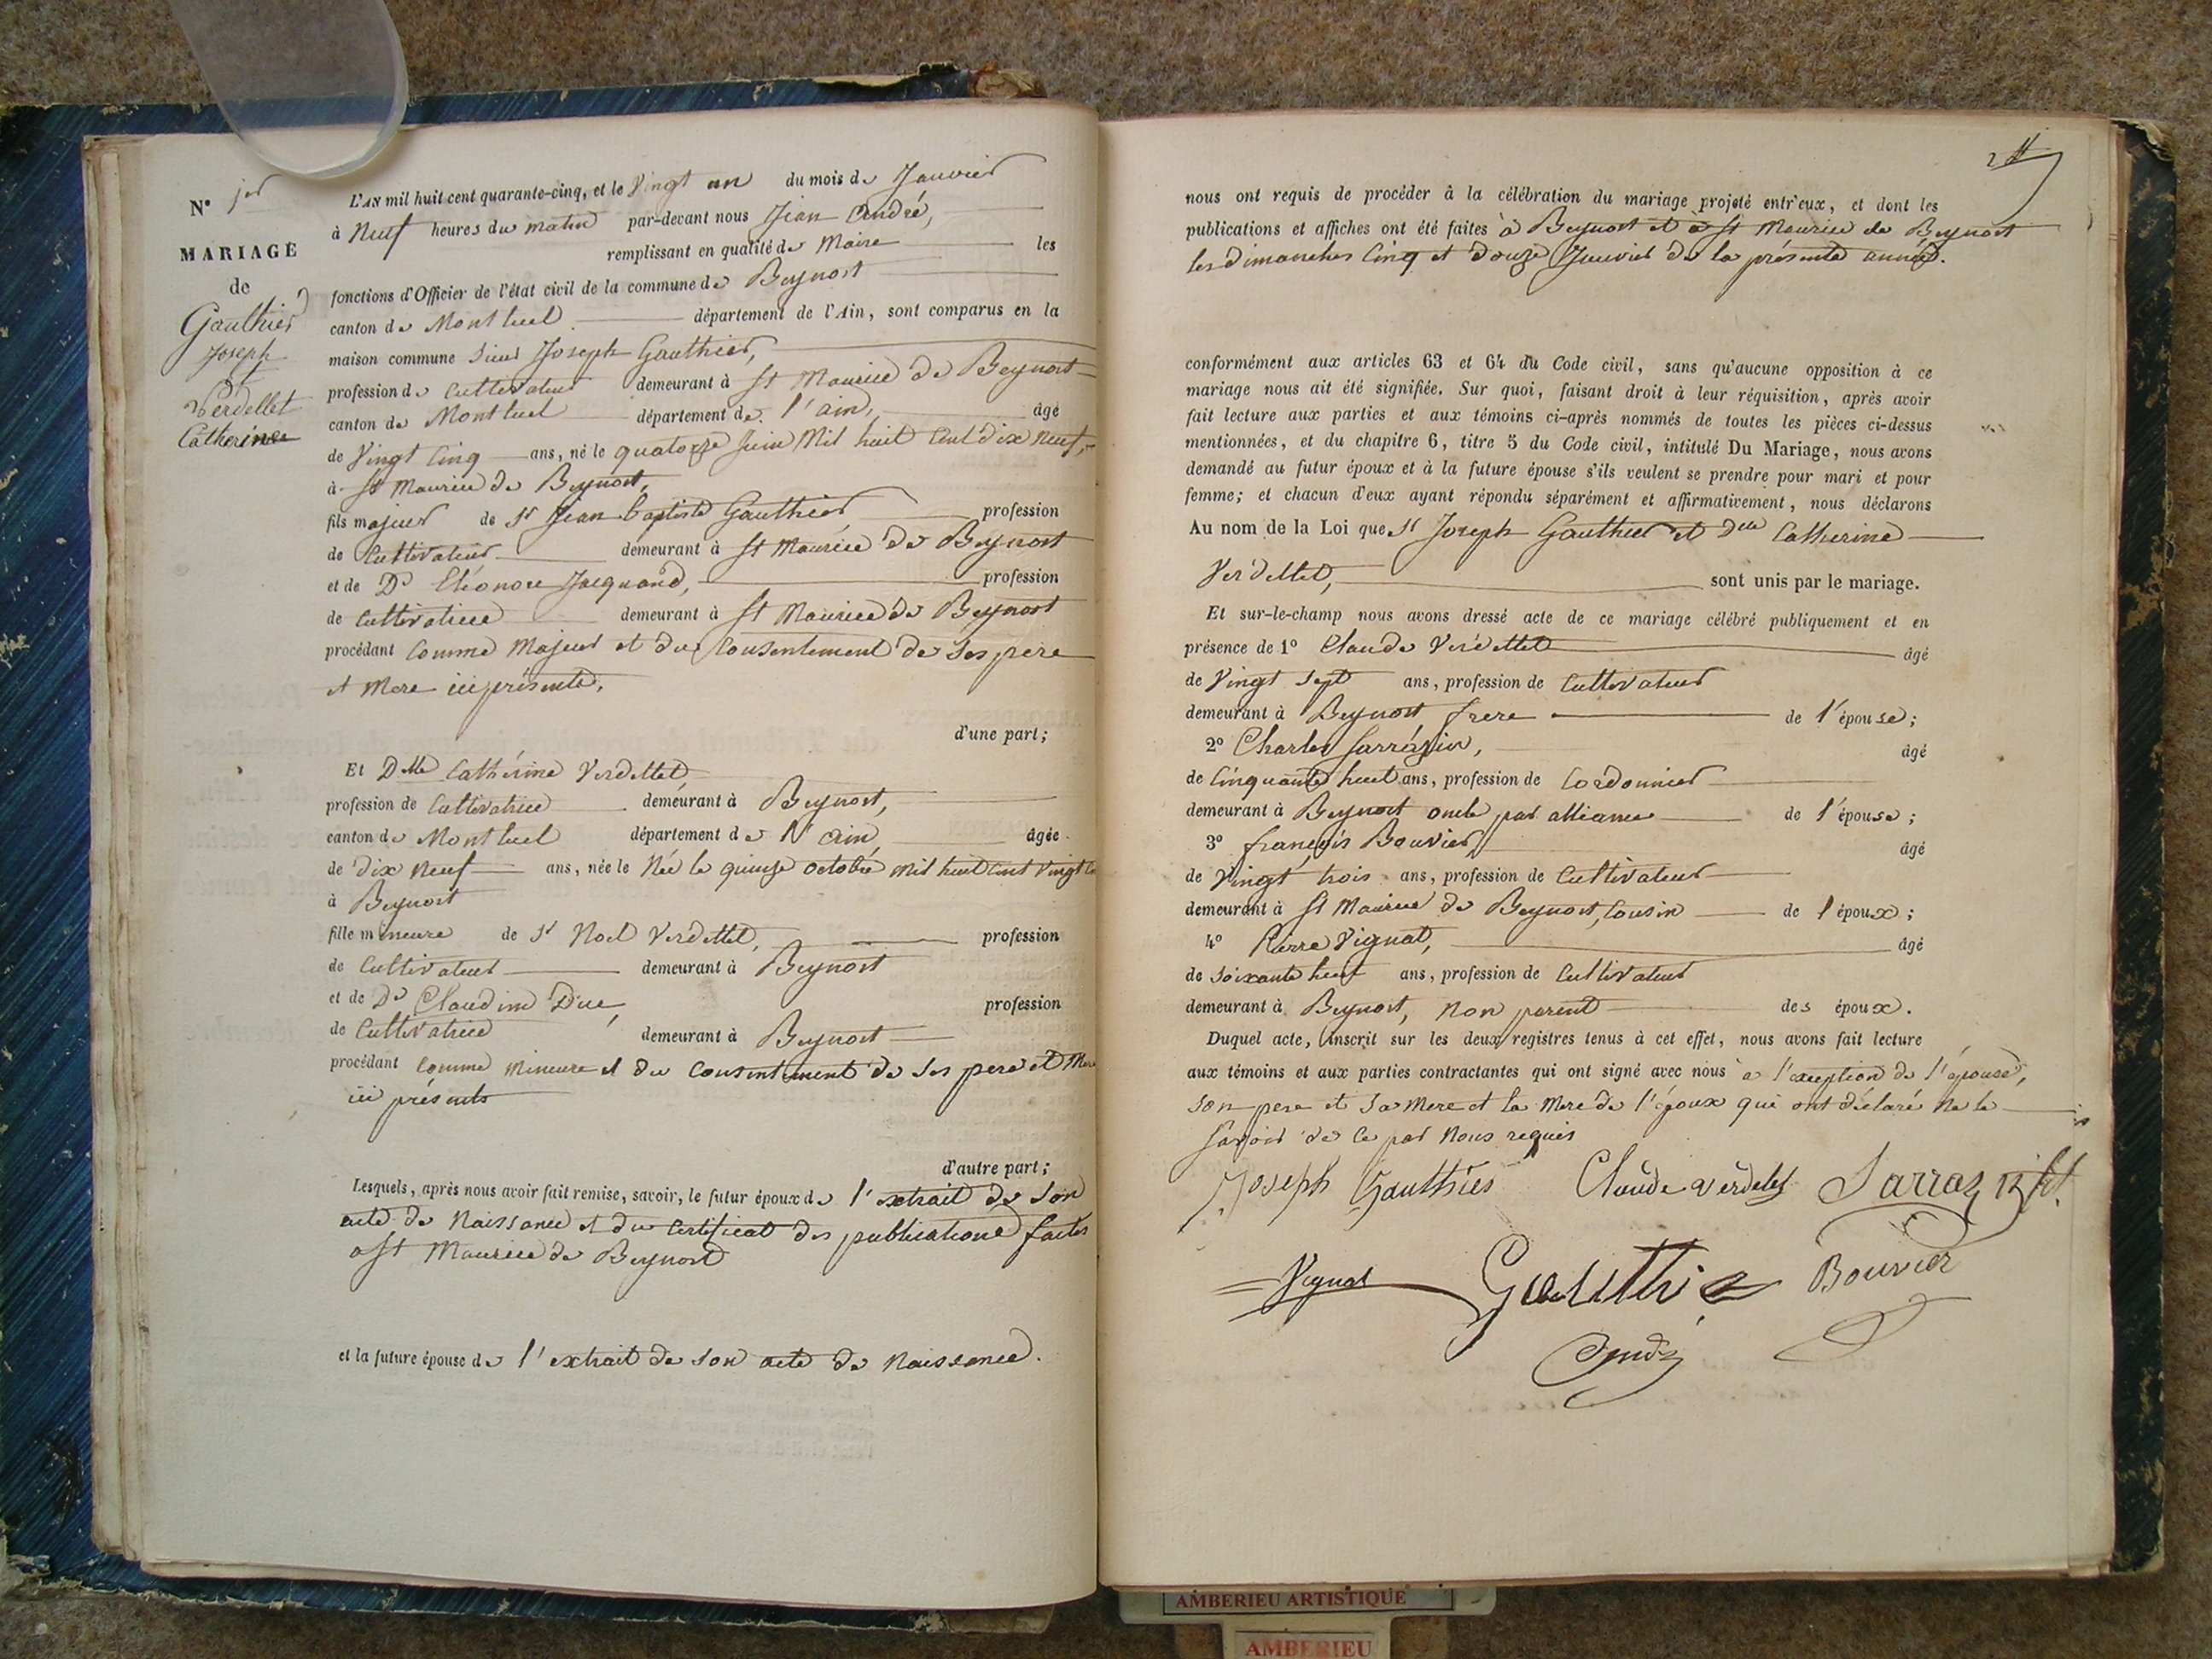 N° 1er
MARIAGE
de
Gauthier
Joseph
&
Verdellet
Catherine
L'AN mil huit cent quarante-cinq, et le Vingt un du mois de Janvier
à Neuf heures du matin par-devant nous Jean André,
remplissant en qualité de Maire les
fonctions d'Officier de l'état civil de la commune de Beynost
canton de Montluel département de l'Ain, sont comparus en la
maison commune Sieur Joseph Gauthier,
profession de Cultivateur demeurant à St Maurice de Beynost
canton de Montluel département de l'ain, âgé
de Vingt Cinq ans, né le quatorze Juin Mil huit Cent dix neuf,
à St Maurice de Beynost,
fils majeur de Sr Jean baptiste Gauthier profession
de Cultivateur demeurant à St Maurice de Beynost
et de De Eléonore Jacquand, profession
de Cultivatrice demeurant à St Maurice de Beynost
procédant Comme Majeur et du Consentement de Ses pere
et Mere ici présents,
d'une part;
Et Delle Cathérine Verdellet
profession de Cultivatrice demeurant à Beynost,
canton de Montluel département de l'ain, âgée
de dix Neuf ans, née le Née le quinze octobre mil huit cent vingt
à Beynost
fille mineure de Sr Noel Verdellet, profession
de Cultivateur demeurant à Beynost
et de De Claudine Duc, profession
de Cultivatrice demeurant à Beynost
procédant Comme Mineure et du Consentement de Ses pere et Mere
ici présents
d'autre part;
Lesquels, après nous avoir fait remise, savoir, le futur époux de l'extrait de Son
acte de Naissance et du Certificat des publications faites
a St Maurice de Beynost
et la future épouse de l'extrait de Son acte de Naissance.
nous ont requis de procéder à la célébration du mariage projeté entr'eux, et dont les
publications et affiches ont été faites à Beynost et à St Maurice de Beynost
les dimanches Cinq et douze Janvier de la présente année.
conformément aux articles 63 et 64 du Code civil, sans qu'aucune opposition à ce
mariage nous ait été signifiée. Sur quoi, faisant droit à leur réquisition, après avoir
fait lecture aux parties et aux témoins ci-après nommés de toutes les pièces ci-dessus
mentionnées, et du chapitre 6, titre 5 du Code civil, intitulé Du Mariage, nous avons
demandé au futur époux et à la future épouse s'ils veulent se prendre pour mari et pour
femme; et chacun d'eux ayant répondu séparément et affirmativement, nous déclarons
Au nom de la Loi que Sr Joseph Gauthier et Delle Catherine
Verdellet, sont unis par le mariage.
Et sur-le-champ nous avons dressé acte de ce mariage célébré publiquement et en
présence de 1° Claude Verdellet âgé
de Vingt Sept ans, profession de Cultivateur
demeurant à Beynost, frere de l'épouse;
2° Charles Sarrazin, âgé
de Cinquante huit ans, profession de Cordonnier
demeurant à Beynost oncle par alliance de l'épouse;
3° françois Bouvier, âgé
de Vingt trois ans, profession de Cultivateur
demeurant à St Maurice de Beynost, Cousin de l'époux;
4° Pierre Vignat, âgé
de soixante huit ans, profession de Cultivateur
demeurant à Beynost, Non parent des époux.
Duquel acte, inscrit sur les deux registres tenus à cet effet, nous avons fait lecture
aux témoins et aux parties contractantes qui ont signé avec nous à l'exception de l'épouse,
Son pere et Sa Mere et la Mere de l'époux qui ont déclaré Ne le
Savoir de Ce par Nous requis
Joseph Gauthier Claude verdelet Sarrazin
Vignat Gauthier Bouvier
André
AMBERIEU ARTISTIQUE
AMBERIEU